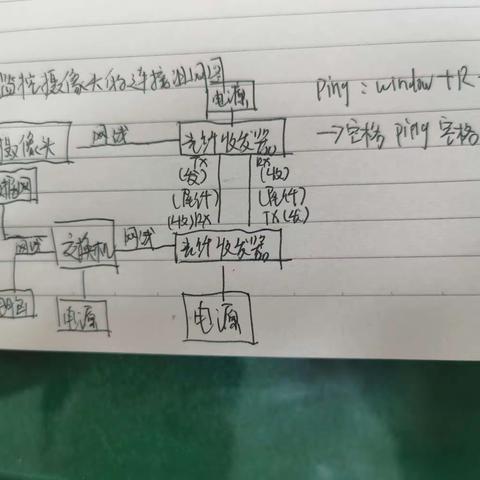 监控摄像头的连接组网图
电源
ping：window+R
→空格 ping 空格
摄像头
网线
光纤收发器
TX
(发)
RX
(收)
(尾纤)
(尾纤)
(收)RX
TX(发)
网线
交换机
网线
光纤收发器
电源
电源